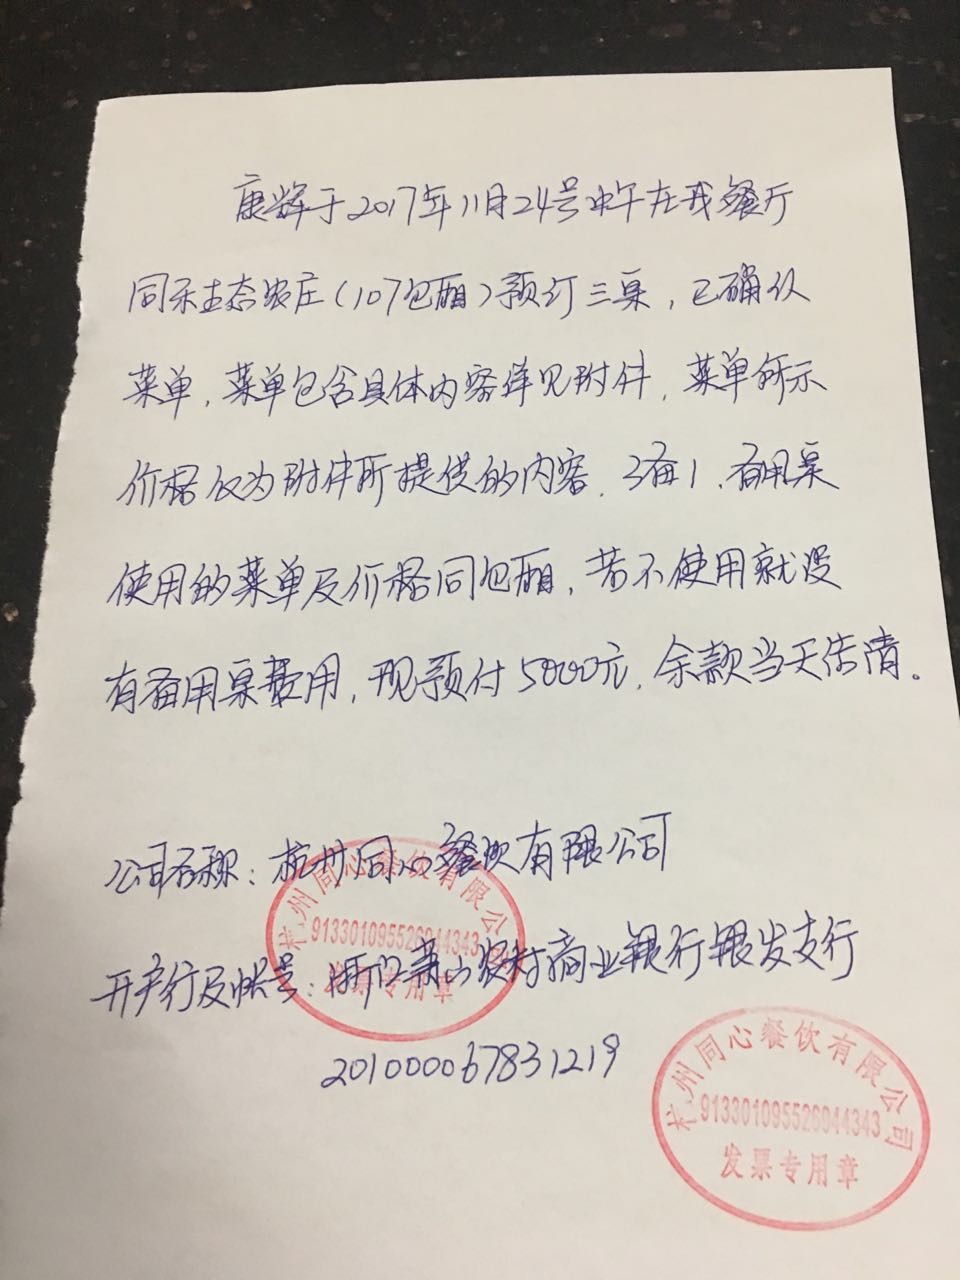 康辉于2017年11月24号中午在我餐厅
同禾生态农庄(107包厢)预订三桌,已确认
菜单,菜单包含具体内容详见附件,菜单所示
价格仅为附件所提供的内容.3备1.备用桌
使用的菜单及价格同包厢,若不使用就没
有备用桌费用,现预付5000元,余款当天结清。
公司名称:杭州同心餐饮有限公司
杭州同心餐饮有限公司
913301095526944343
发票专用章
开户行及帐号:浙江萧山农村商业银行银发支行
201000067831219
杭州同心餐饮有限公司
913301095526944343
发票专用章